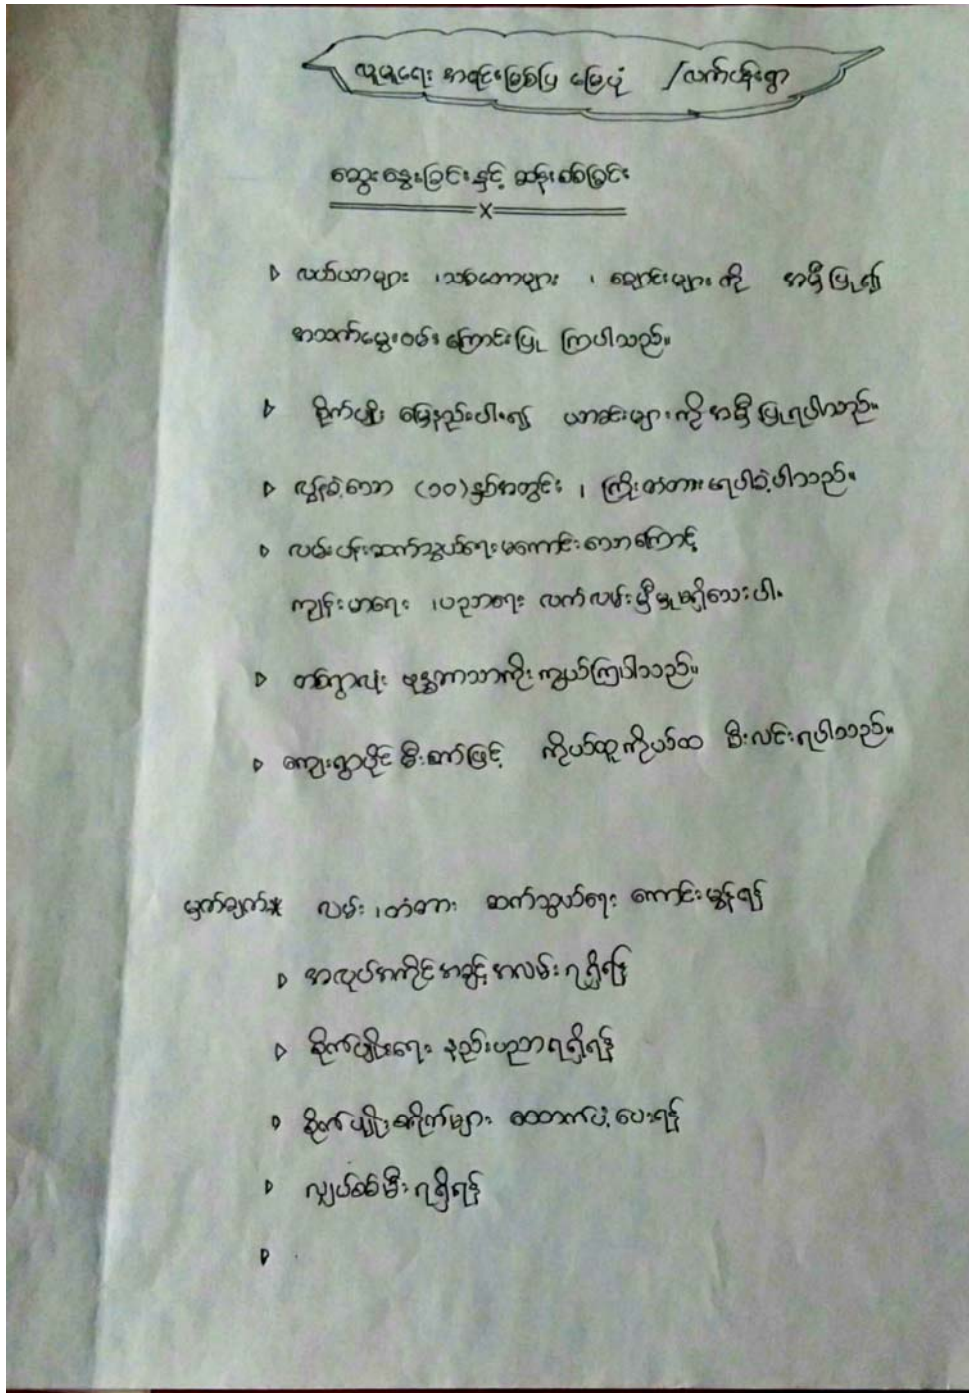 လူမှုရေး အရင်းအမြစ်ပြ မြေပုံ / လက်ပန်းရွာ
ဆွေးနွေးခြင်းနှင့် ဆန်းစစ်ခြင်း
လယ်ယာများ ၊သစ်တောများ ၊ ချောင်းများ ကို အမှီပြု၍
အသက်မွေးဝမ်းကြောင်းပြု ကြပါသည်။
စိုက်ပျိုး မြေနည်းပါး၍ ယာခင်းများကို အမှီပြုရပါသည်။
လွန်ခဲ့သော (၁၀)နှစ်အတွင်း ၊ ကြိုးတံတား ရပါခဲ့ပါသည်။
လမ်းပန်းဆက်သွယ်ရေးမကောင်းသောကြောင့်
ကျန်းမာရေး ၊ပညာရေး လက်လမ်းမှီမှုမရှိသေးပါ။
တစ်ရွာလုံး ဗုဒ္ဓဘာသာကိုးကွယ်ကြပါသည်။
ကျေးရွာပိုင်မီးစက်ဖြင့် ကိုယ်ထူကိုယ်ထ မီးလင်းရပါသည်။
မှတ်ချက်* လမ်း ၊တံတား ဆက်သွယ်ရေး ကောင်းမွန်ရန်
အလုပ်အကိုင်အခွင့်အလမ်းရရှိရန်
စိုက်ပျိုးရေး နည်းပညာရရှိရန်
စိုက်ပျိုးစရိတ်များ ထောက်ပံ့ပေးရန်
လျှပ်စစ်မီးရရှိရန်